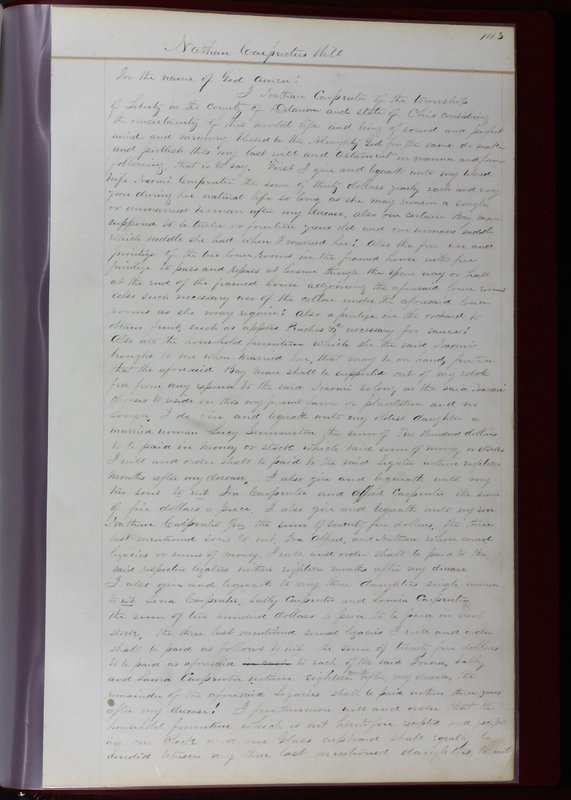 143
Nathan Carpenters Will
In the name of God amen!
I Nathan Carpenter of the township
of Liberty in the county of Delaware and state of Ohio considering
the uncertainty of this mortal life and being of sound and perfect
mind and memory blessed be the Almighty God for the same do make
and publish this my last will and testament in manner and form
following that is to say. First I give and bequath unto my beloved
wife Naomi Carpenter the sum of thirty dollars yearly each and every
year during her natural life so long as she may remain a single
or unmarried woman after my decease, also one certain Bay mare
supposed to be twelve or fourteen years old and one womans saddle
which saddle she had when I married her! Also the free use and
privilege of the two lower rooms in the framed house with free
privilege to pass and repass at leisure through the space way or hall
at the end of the framed house adjoining the aforesaid lower rooms
also such necessary use of the cellar under the aforesaid lower
rooms as she may require! Also a privilege in the orchard to
obtain fruit, such as apples Peaches &c necessary for sauce!
Also all the household furniture which she the said Naomi
brought to me when married her, that may be on hand, further
that the aforesaid Bay mare shall be supported out of my estate
free from any expense to the said Naomi so long as the said Naomi
chooses to reside on this my present farm or plantation and no
longer. I do give and bequath unto my oldest daughter a
married woman Lucy the sum of Five Hundred dollars
to be paid in money or stock which said sum of money or stocks
I will and order shall be paid to the said legatee within eighteen
months after my decease. I also give and bequeath unto my
two sons to wit Ira Carpenter and Alfred Carpenter the sum
of five dollars a piece. I also give and bequath unto my son
Nathan Carpenter the sum of seventy five dollars, the three
last mentioned sons to wit, Ira Alfred, and Nathan whose several
legacies or sums of money I will and order shall be paid to the
said respective legatees within eighteen months after my decease
I also give and bequeath to my three daughters single women
to wit Carpenter, Sally Carpenter and Laura Carpenter
the sum of two hundred dollars a piece to be paid in neat
stock, the three last mentioned several legacies I will and order
shall be paid as follows to wit the sum of twenty five dollars
to be paid as aforesaid to each of the said Sally
and Laura Carpenter within eighteen months after my decease, the
remainder of the aforesaid Legacies shall be paid within three years
after my decease! I furthermore will and order that the
household furniture which is not heretofore excepted and except
ing one Clock and one Glass cupboard shall equally be
divided between my three last mentioned daughters to wit